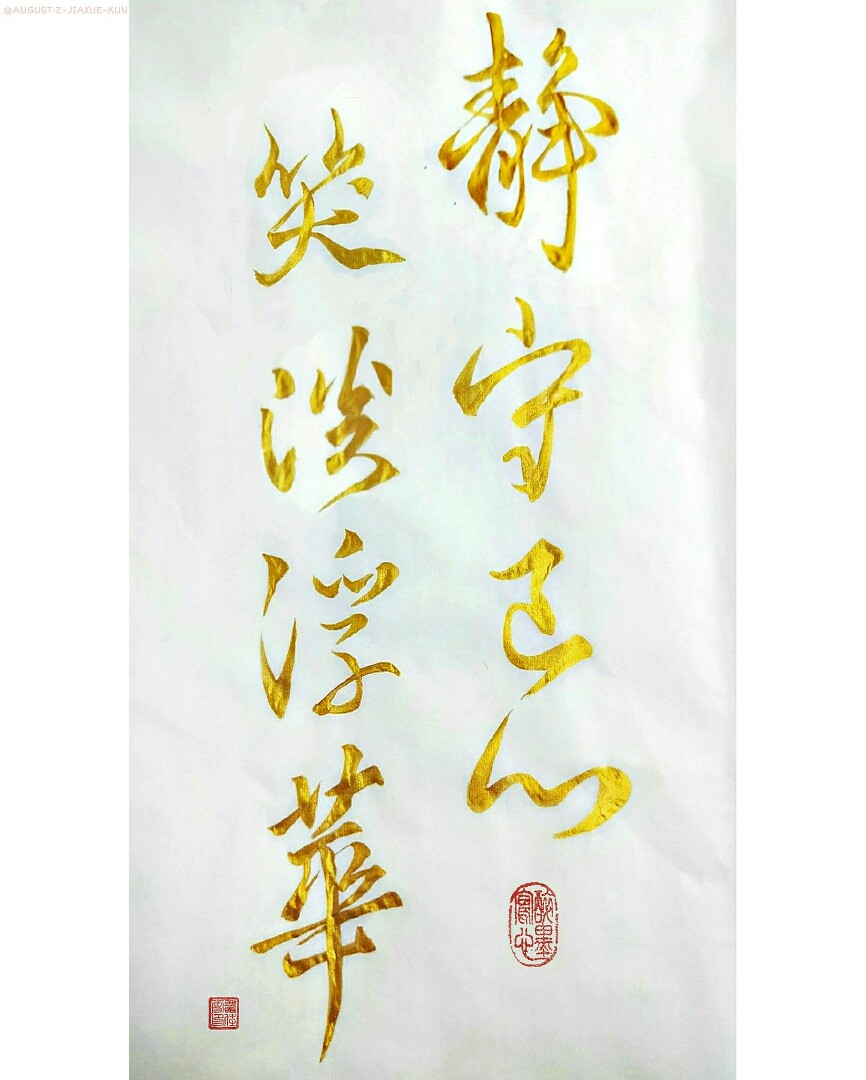 @AUGUST-Z-JIAXUE-KUN
靜守己心
笑淡浮華